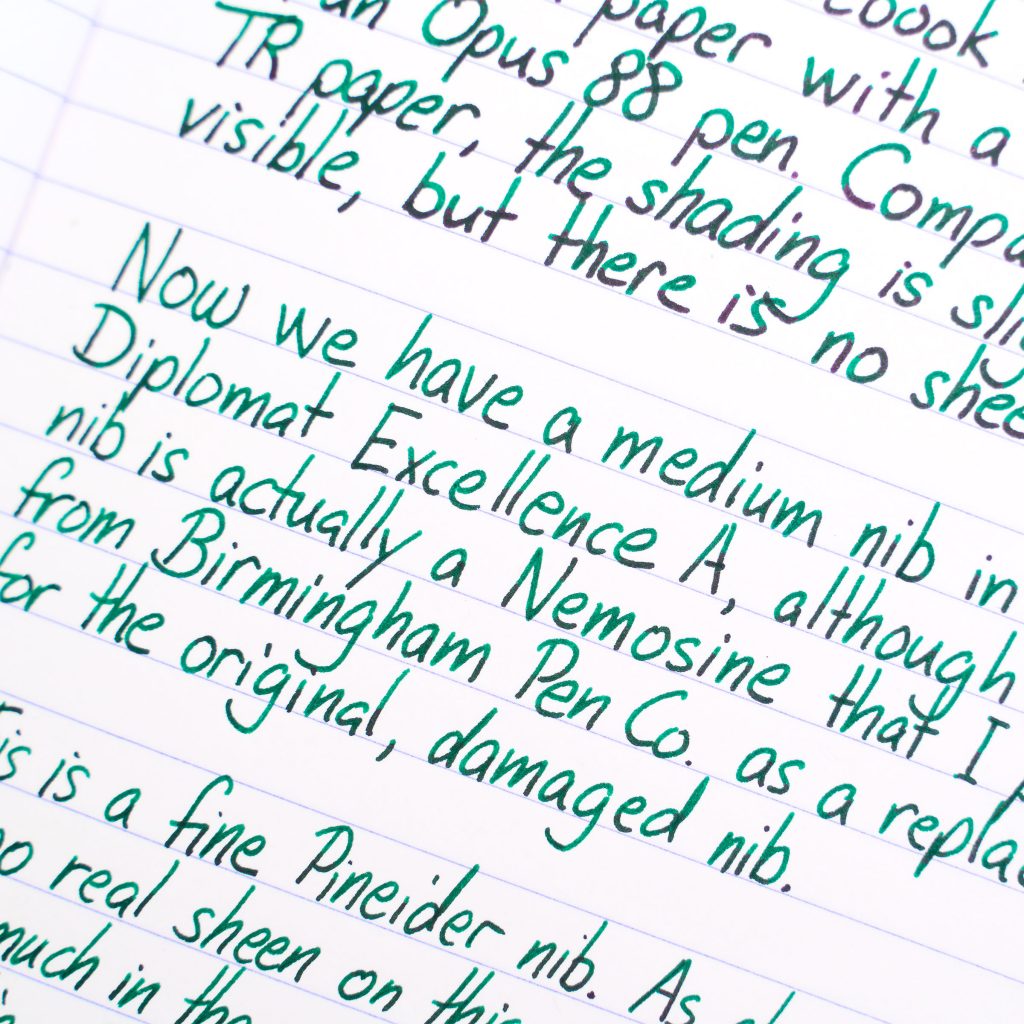 paper with a
an Opus 88 pen. Compa
TR paper, the shading is sli
visible, but there is no shee
Now we have a medium nib in
Diplomat Excellence A, although
nib is actually a Nemosine that I
from Birmingham Pen Co. as a repla
for the original, damaged nib.
is is a fine Pineider nib. As
real sheen on this
much in the